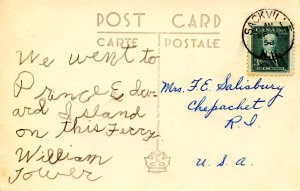 POST CARD
CARTE POSTALE
SACKVILLE
CANADA
3
We went to
Prince Edw
ard Island
on this Ferry
William
Tower
Mrs. F.E. Salisbury
Chepachet
R.I.
U.S.A.